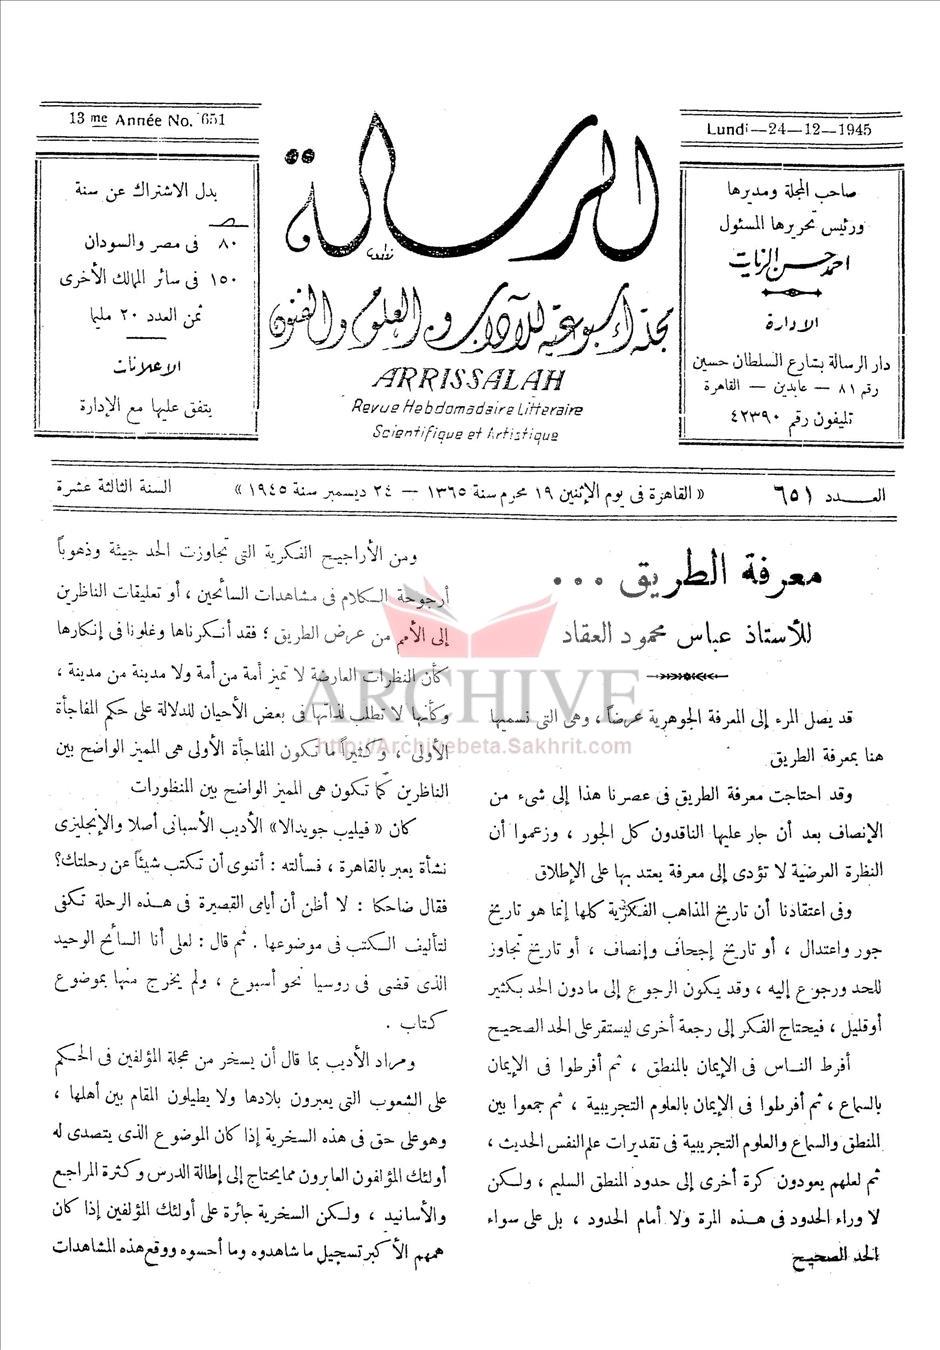 13 me Année No. 651
Lundi—24—12—1945
بدل الاشتراك عن سنة
٨٠ فى مصر والسودان
١٥٠ فى سائر الممالك الأخرى
ثمن العدد ٢٠ مليما
الاعلانات
يتفق عليها مع الإدارة
الرسالة
مجلة أسبوعية للآداب والعلوم والفنون
ARRISSALAH
Revue Hebdomadaire Litteraire
Scientifique et Artistique
صاحب المجلة ومديرها
ورئيس تحريرها المسئول
احمد حسن الزيات
الادارة
دار الرسالة بشارع السلطان حسين
رقم ٨١ — عابدين — القاهرة
تليفون رقم ٤٢٣٩٠
العـــدد ٦٥١
« القاهرة فى يوم الإثنين ١٩ محرم سنة ١٣٦٥ — ٢٤ ديسمبر سنة ١٩٤٥ »
السنة الثالثة عشرة
معرفة الطريق ...
للأستاذ عباس محمود العقاد
قد يصل المرء إلى المعرفة الجوهرية عرضاً ، وهى التى نسميها
هنا بمعرفة الطريق
وقد احتاجت معرفة الطريق فى عصرنا هذا إلى شىء من
الإنصاف بعد أن جار عليها الناقدون كل الجور ، وزعموا أن
النظرة العرضية لا تؤدى إلى معرفة يعتد بها على الإطلاق
وفى اعتقادنا أن تاريخ المذاهب الفكرية كلها إنما هو تاريخ
جور واعتدال ، أو تاريخ إجحاف وإنصاف ، أو تاريخ تجاوز
للحد ورجوع إليه ، وقد يكون الرجوع إلى ما دون الحد بكثير
أو قليل ، فيحتاج الفكر إلى رجعة أخرى ليستقر على الحد الصحيح
أفرط النـاس فى الإيمان بالمنطق ، ثم أفرطوا فى الإيمان
بالسماع ، ثم أفرطوا فى الإيمان بالعلوم التجريبية ، ثم جمعوا بين
المنطق والسماع والعلوم التجريبية فى تقديرات علم النفس الحديث ،
ثم لعلهم يعودون كرة أخرى إلى حدود المنطق السليم ، ولـكن
لا وراء الحدود فى هـذه المرة ولا أمام الحدود ، بل على سواء
الحد الصحيح
ومن الأراجيح الفكرية التى تجاوزت الحد جيئة وذهوباً
أرجوحة الـكلام فى مشاهدات السائحين ، أو تعليقات الناظرين
إلى الأمم من عرض الطريق ؛ فقد أنـكرناها وغلونا فى إنـكارها
كأن النظرات العارضة لا تميز أمة من أمة ولا مدينة من مدينة ،
وكأنها لا تطلب لذاتها فى بعض الأحيان للدلالة على حكم المفاجأة
الأولى ، وكثيراً ما تـكون المفاجأة الأولى هى المميز الواضح بين
الناظرين كما تـكون هى المميز الواضح بين المنظورات
كان « فيليب جويدالا» الأديب الأسبانى أصلا والإنجليزى
نشأة يعبر بالقاهرة ، فسألته : أتنوى أن تـكتب شيئاً عن رحلتك؟
فقال ضاحكا : لا أظن أن أيامى القصيرة فى هـذه الرحلة تـكفى
لتأليف الـكتب فى موضوعها . ثم قال : لعلى أنا السائح الوحيد
الذى قضى فى روسيا نحو أسبوع ، ولم يخرج منها بموضوع
كتاب .
ومراد الأديب بما قال أن يسخر من عجلة المؤلفين فى الحـكم
على الشعوب التى يعبرون بلادها ولا يطيلون المقام بين أهلها ،
وهو على حق فى هذه السخرية إذا كان الموضوع الذى يتصدى له
أولئك المؤلفون العابرون مما يحتاج إلى إطالة الدرس وكثرة المراجع
والأسانيد ، ولـكن السخرية جائرة على أولئك المؤلفين إذا كان
همهم الأكبر تسجيل ما شاهدوه وما أحسوه ووقع هذه المشاهدات
ARCHIVE
http://Archivebeta.Sakhrit.com